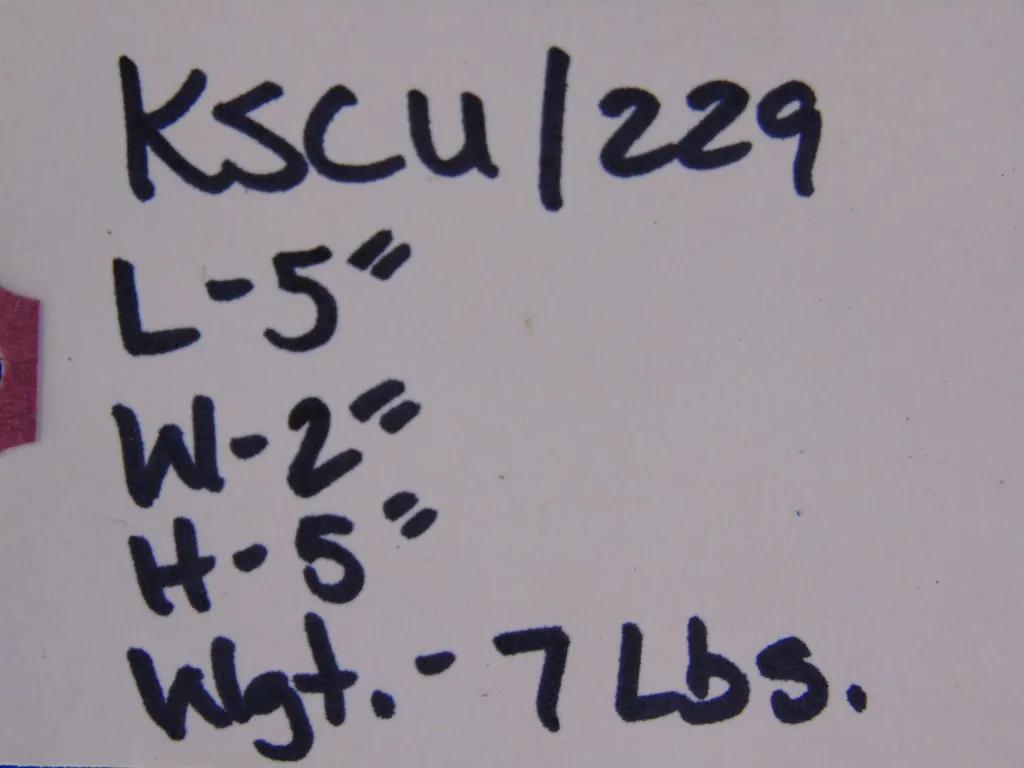 KSCU/229
L-5"
W-2"
H-5"
Wgt.-7 Lbs.